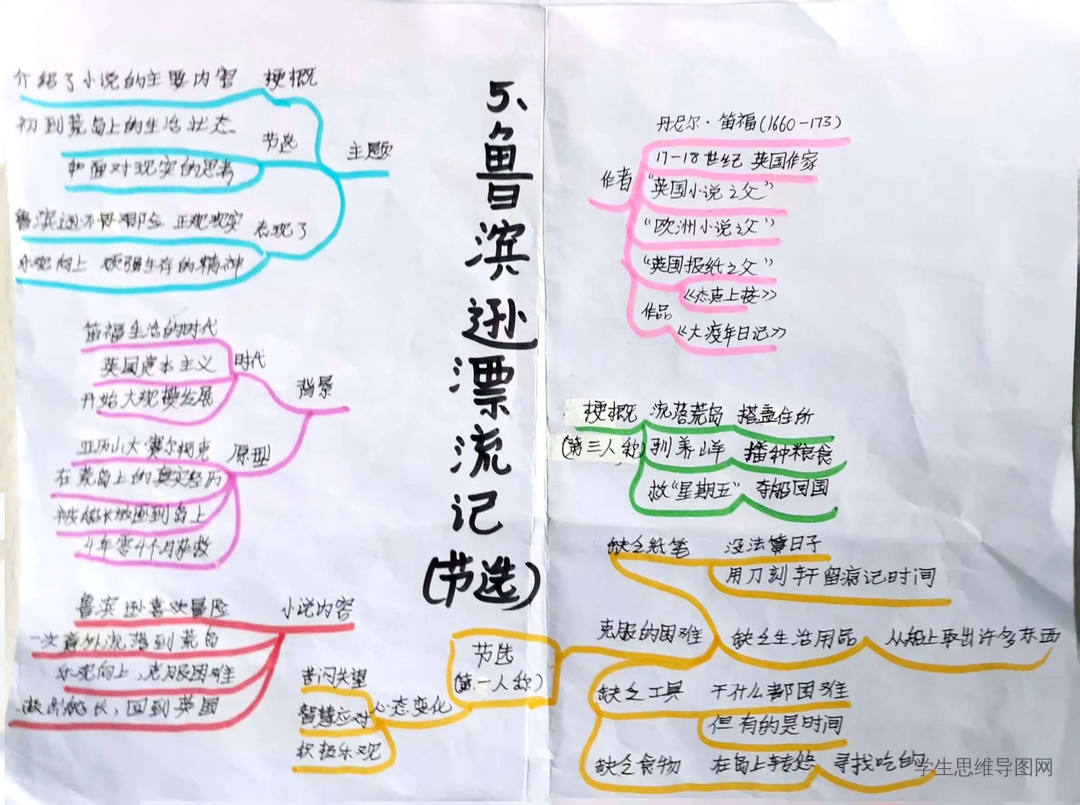 5、鲁滨逊漂流记
(节选)
主题
梗概
介绍了小说的主要内容
节选
初到荒岛上的生活状态
和面对现实的思考
表现了
鲁滨逊不畏艰险 正视现实
乐观向上 顽强生存的精神
背景
时代
笛福生活的时代
英国资本主义
开始大规模发展
原型
亚历山大·赛尔柯克
在荒岛上的真实经历
被船长放逐到岛上
4年零4个月获救
小说内容
鲁滨逊喜欢冒险
一次意外流落到荒岛
乐观向上,克服困难
救出船长,回到英国
作者
丹尼尔·笛福(1660-173)
17-18世纪 英国作家
"英国小说之父"
"欧洲小说之父"
"英国报纸之父"
作品
《杰克上校》
《大疫年日记》
梗概
(第三人称)
流落荒岛 搭盖住所
驯养山羊 播种粮食
救"星期五" 夺船回国
节选
(第一人称)
克服的困难
缺乏纸笔 没法算日子
用刀刻 留痕记时间
缺乏生活用品 从船上取出许多东西
缺乏工具 干什么都困难
但有的是时间
缺乏食物 在岛上 寻找吃的
心态变化
苦闷失望
智慧应对
积极乐观
学生思维导图网